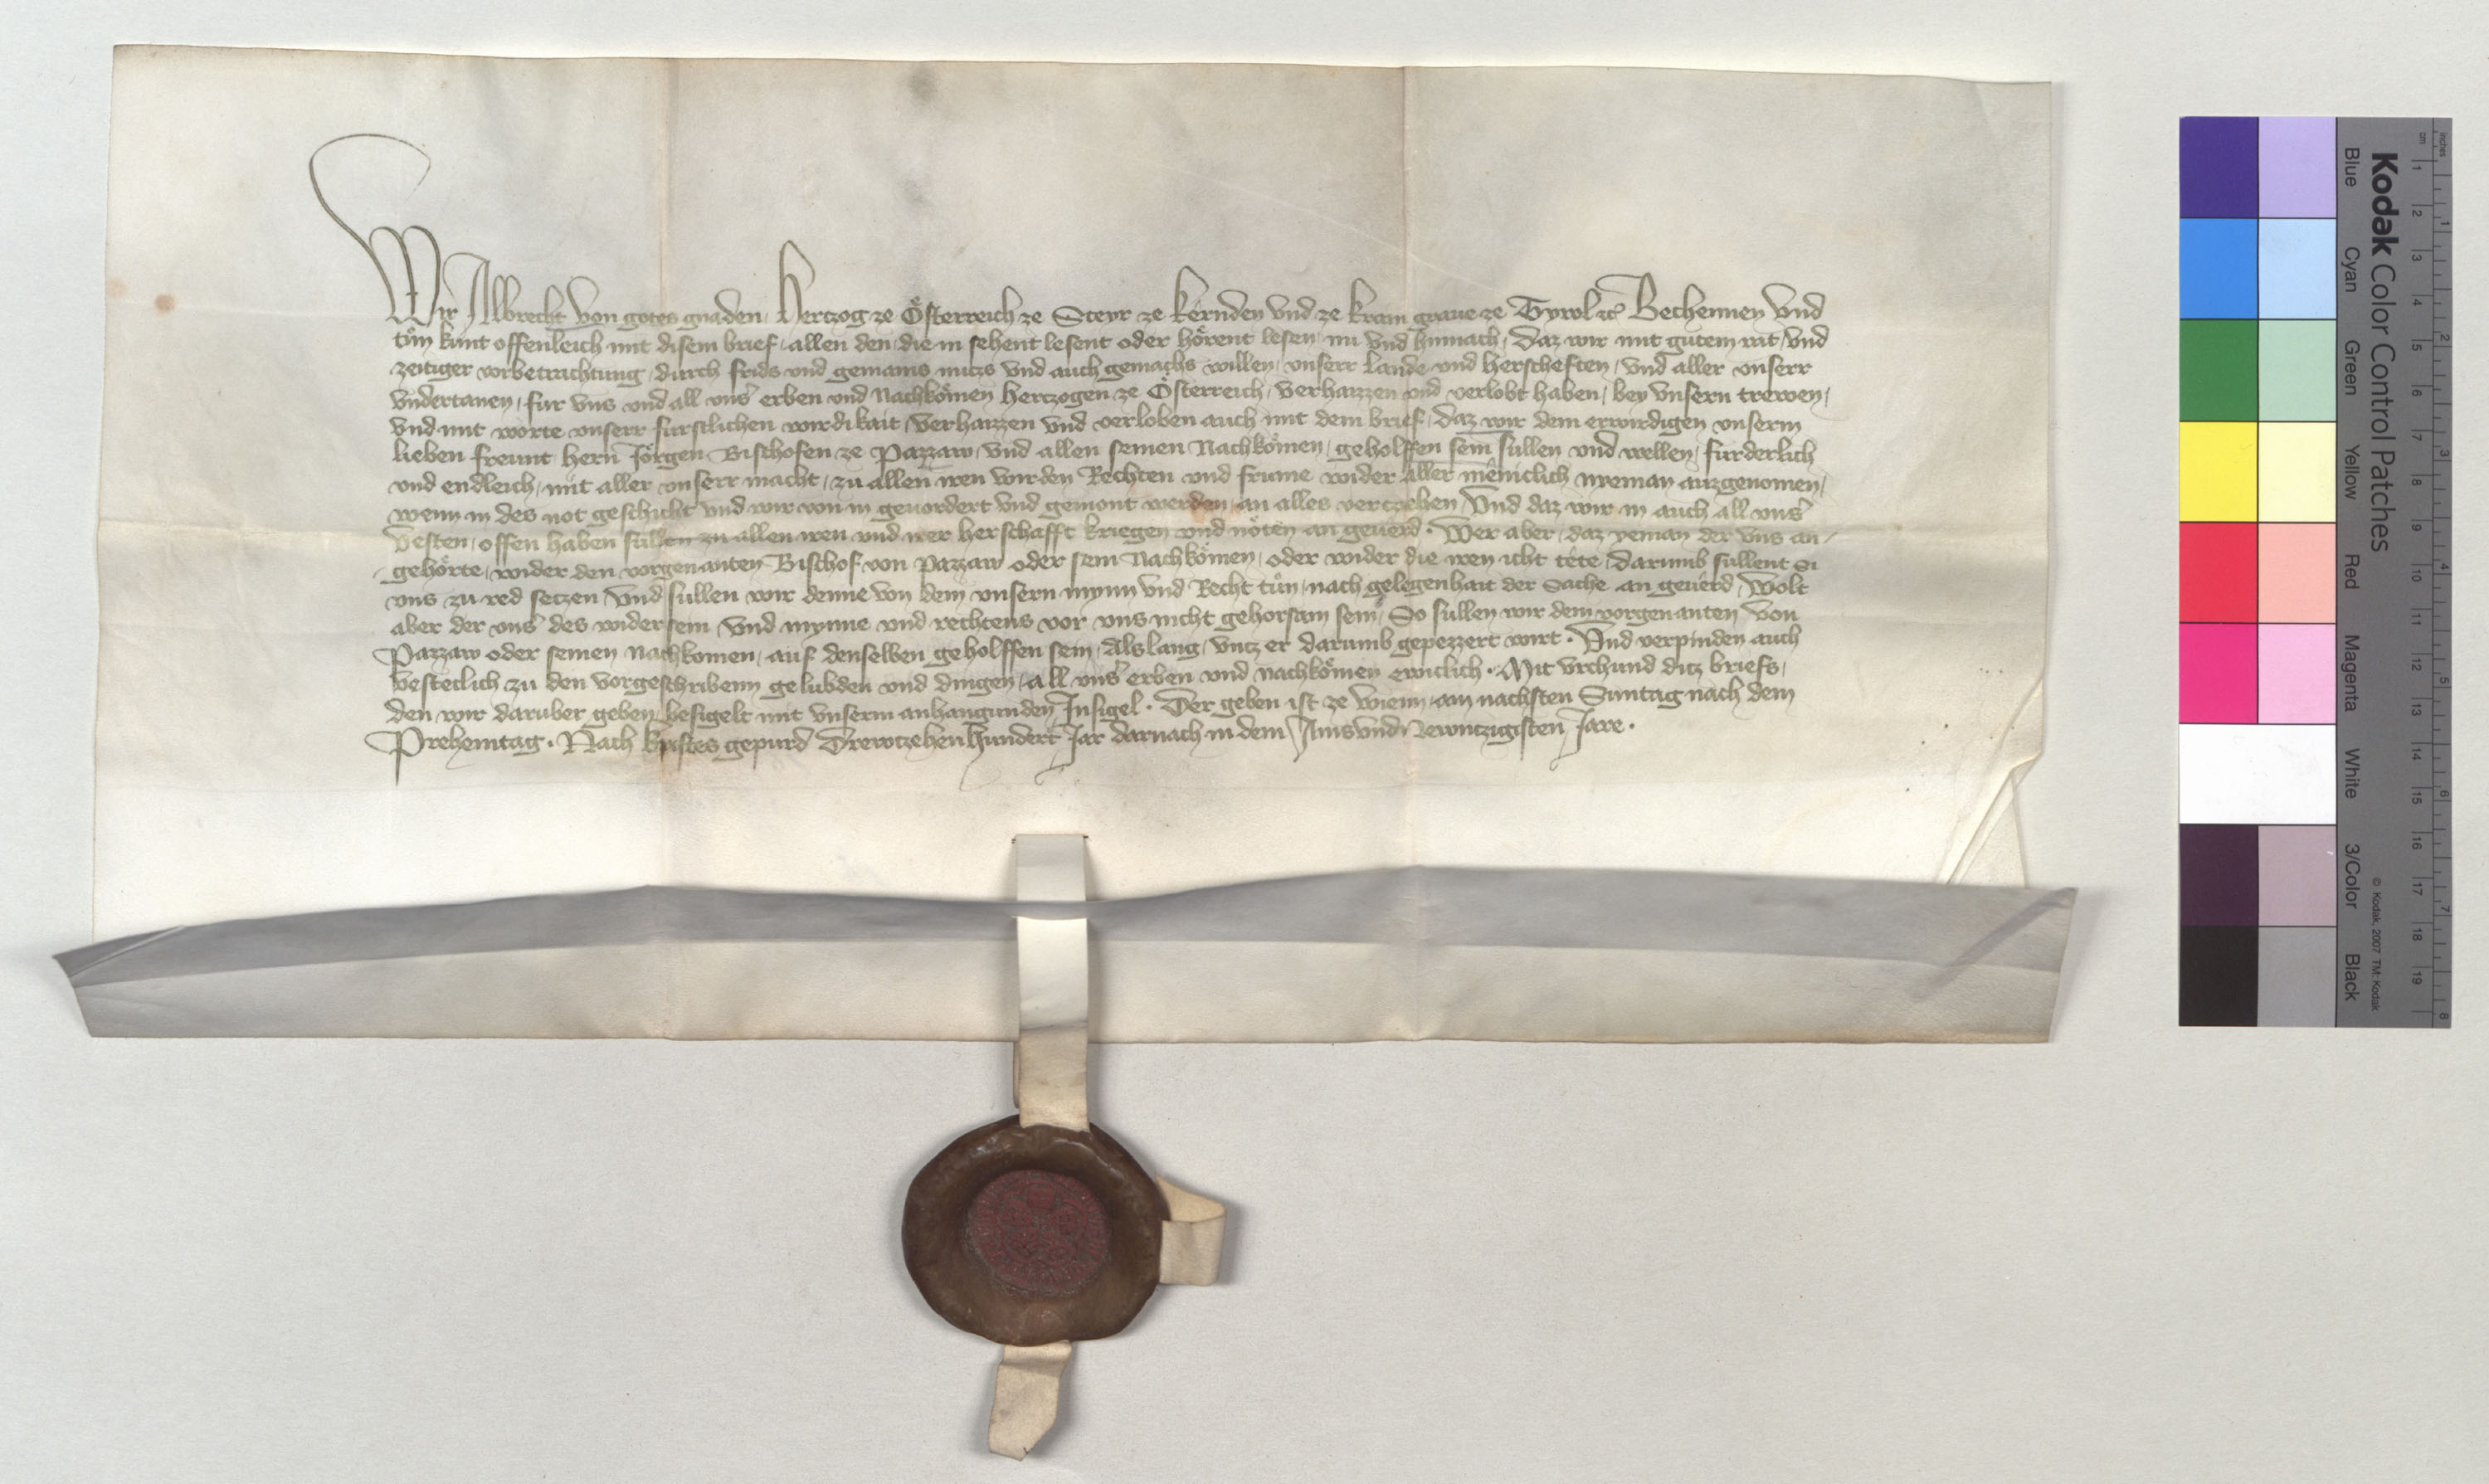 Wir Albrecht von gotes gnaden, Herczog ze Österreich ze Steyr ze Kernden vnd ze Krain graue ze Tyrol ꝛc Bechennen vnd
tůn kunt offenleich mit disem brief, allen den, die in sehent lesent oder hörent lesen, nu vnd hinnach, Daz wir mit gutem rat, vnd
zeitiger vorbetrachtung, durch frids vnd gemains nuczs vnd auch gemachs willen, vnserr Lande vnd Herscheften, vnd aller vnserr
vndertanen, fur vns vnd all vnsʼ erben vnd Nachkömen Herczogen ze Österreich, verhaizzen vnd verlobt haben, bey vnsern trewen,
vnd mit worte vnserr furstlichen wirdikait, verhaizzen vnd verloben auch mit dem brief, daz wir dem erwirdigen vnserm
lieben freunt hern Jörgen Bischofen ze Pazzaw, vnd allen seinen Nachkömen, geholffen sein sullen vnd wellen, furderlich
vnd endleich, mit aller vnserr macht, zu allen iren wirden Rechten vnd frume wider aller meniclich nyeman auzgenomen,
wenn in des not geschicht vnd wir von in geuordert vnd gemont werden, an alles verczyehen, Vnd daz wir in auch all vnsʼ
Vesten, offen haben sullen zu allen iren vnd irer herschafft kriegen vnd nöten an geuerd. Wer aber, daz yeman der vns an-
gehörte, wider den vorgenanten Bischof von Pazzaw oder sein Nachkömen, oder wider die iren icht tete, darumb sullent si
vns zu red seczen, Vnd sullen wir denne von dem vnsern mynn vnd Recht tůn, nach gelegenhait der Sache an geuerd, Wolt
aber der vnsʼ des wider sein vnd mynne vnd rechtens vor vns nicht gehorsam sein, So sullen wir dem vorgenanten von
Pazzaw oder seinen nachkomen, auf denselben geholffen sein, Als lang, vncz er darumb gepezzert wirt. Vnd verpinden auch
vesteclich zu den vorgeschribenn gelubden vnd dingen, all vnsʼ erben vnd nachkömen ewiclich. Mit vrchund dicz briefs,
den wir daruber geben, besigelt mit vnserm anhangunden Insigel. Der geben ist ze Wienn, am nachsten Suntag nach dem
Prehemtag. Nach kristes gepurd Drewczehenhundert Jar darnach in dem Ains vnd Newnczigisten Jare.
Kodak Color Control Patches
Blue Cyan Green Yellow Red Magenta White 3/Color Black
© Kodak, 2007 TM: Kodak
inches 1 2 3 4 5 6 7 8
cm 1 2 3 4 5 6 7 8 9 10 11 12 13 14 15 16 17 18 19